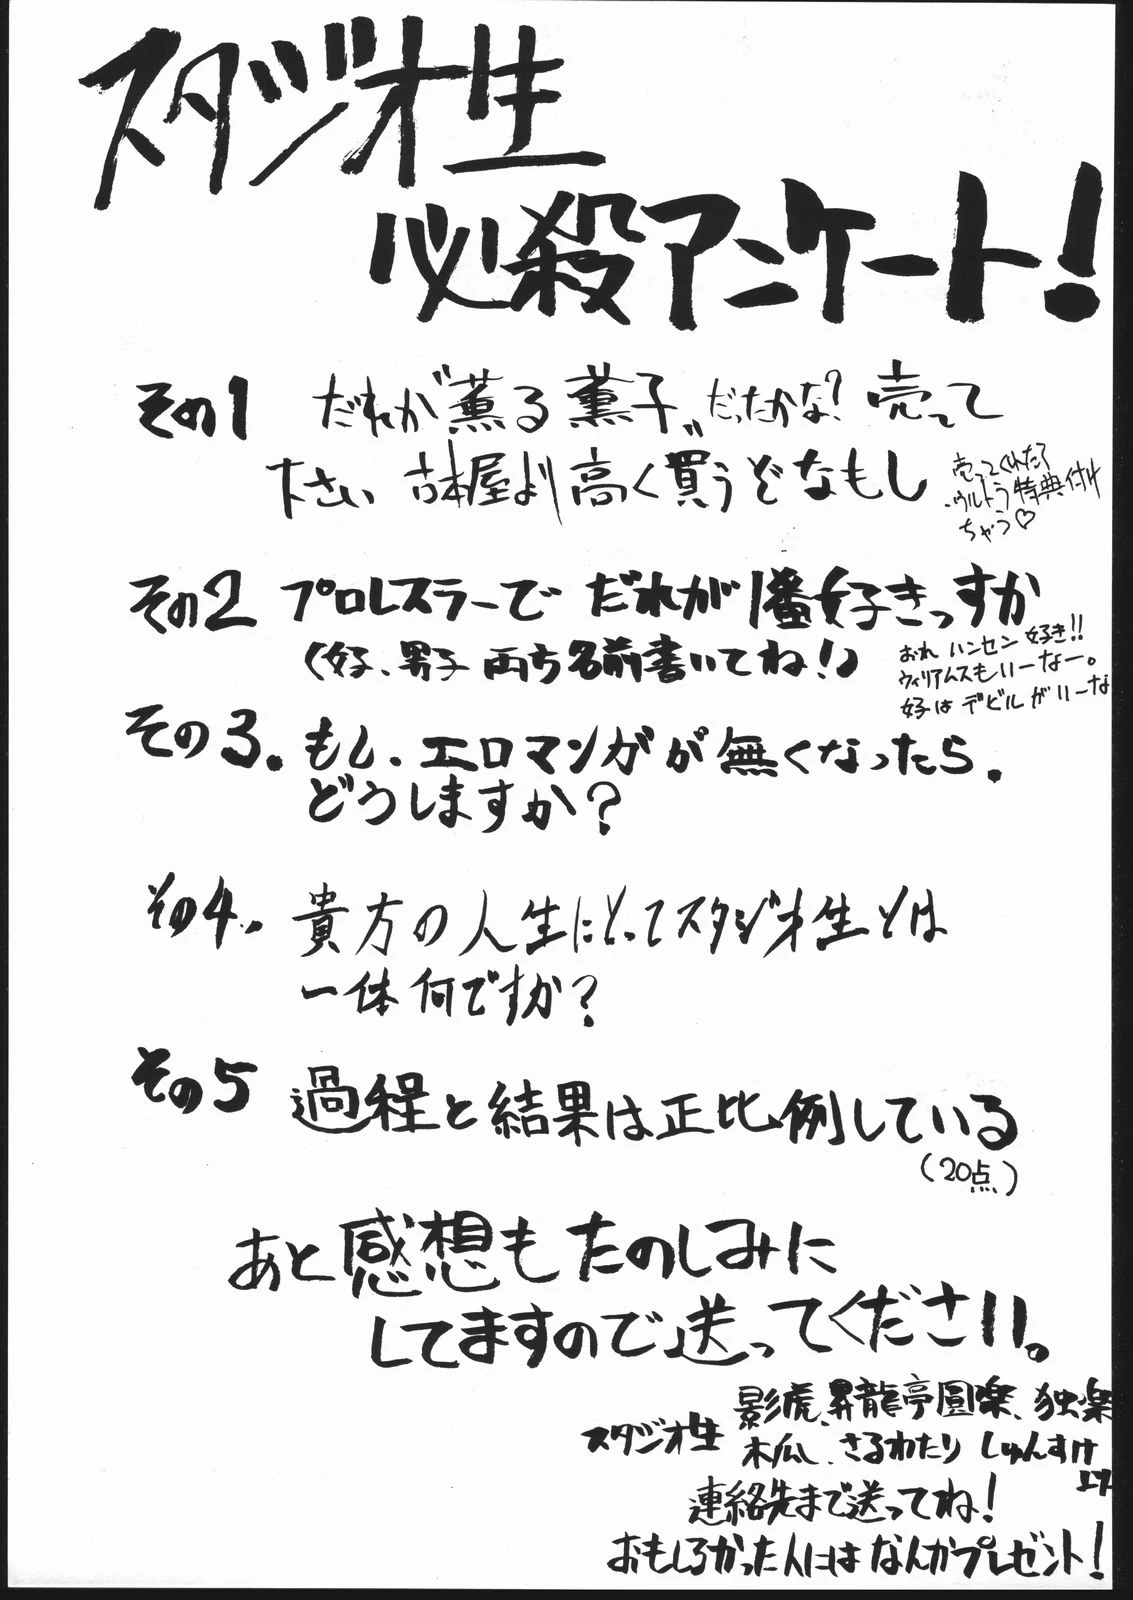 スタジオ生
必殺アンケート!
その1 だれか“薫る薫子”だったかな?売って
下さい 古本屋より高く買うぞなもし
売ってくれたら
ウルトラ特典付け
ちゃう♡
その2 プロレスラーで だれが1番好きっすか
(女子、男子 両ち名前書いてね!)
おれ ハンセン 好き!!
ウィリアムスもいーなー。
女子は デビルがいーな
その3. もし、エロマンガが無くなったら、
どうしますか?
その4、 貴方の人生にとってスタジオ生とは
一体何ですか?
その5 過程と結果は正比例している
(20点)
あと感想もたのしみに
してますので送ってください。
スタジオ生 影虎、昇龍亭圓楽、独楽
木瓜、さるわたり しゅんすけ
より
連絡先まで送ってね!
おもしろかった人にはなんかプレゼント!